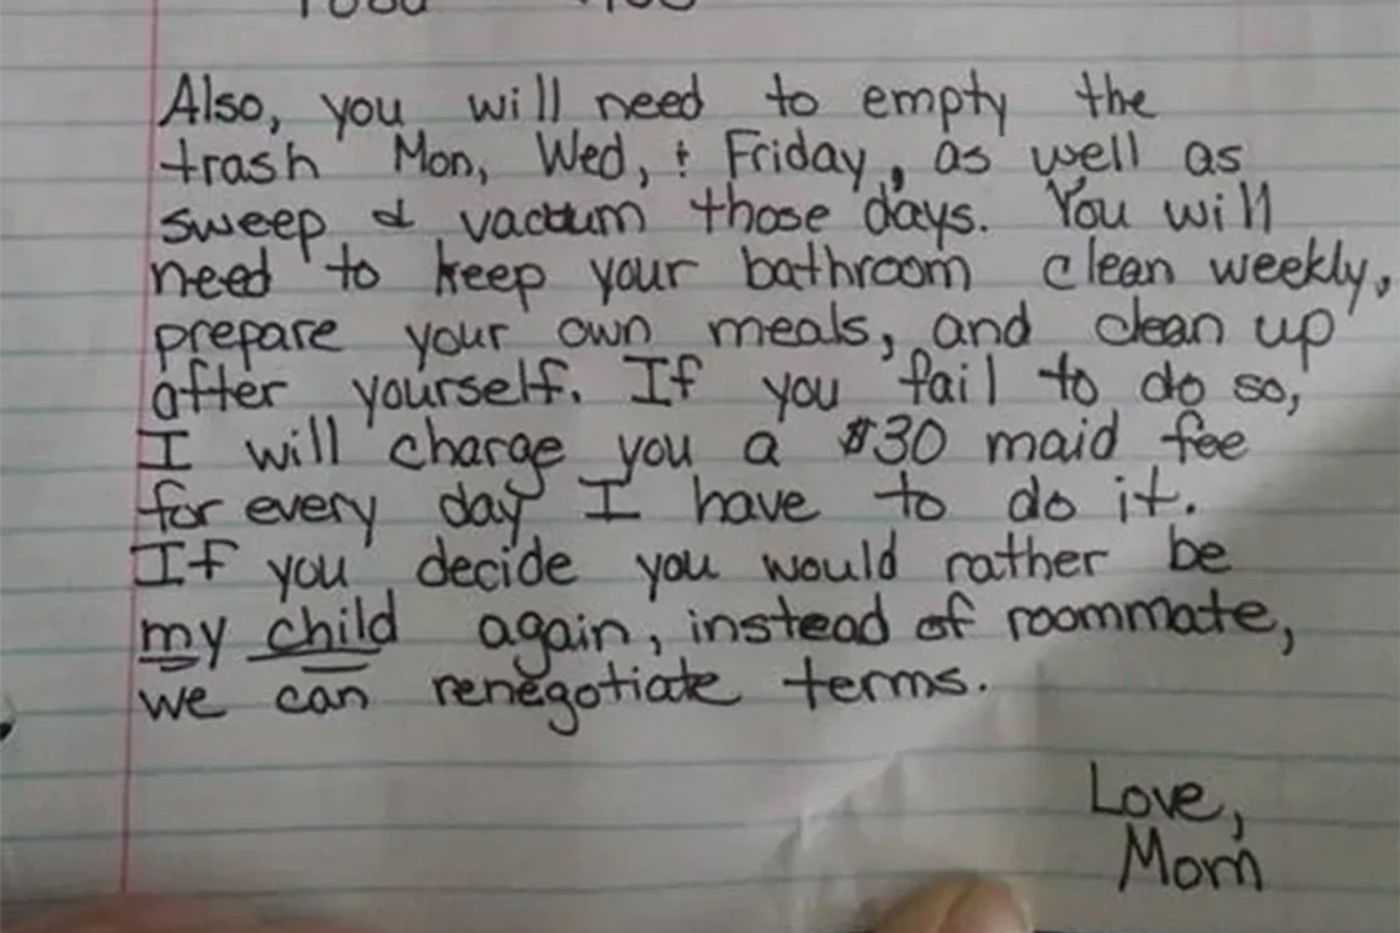 Also, you will need to empty the
trash Mon, Wed, + Friday, as well as
sweep & vacuum those days. You will
need to keep your bathroom clean weekly,
prepare your own meals, and clean up
after yourself. If you fail to do so,
I will charge you a $30 maid fee
for every day I have to do it.
If you decide you would rather be
my child again, instead of roommate,
we can renegotiate terms.
Love,
Mom